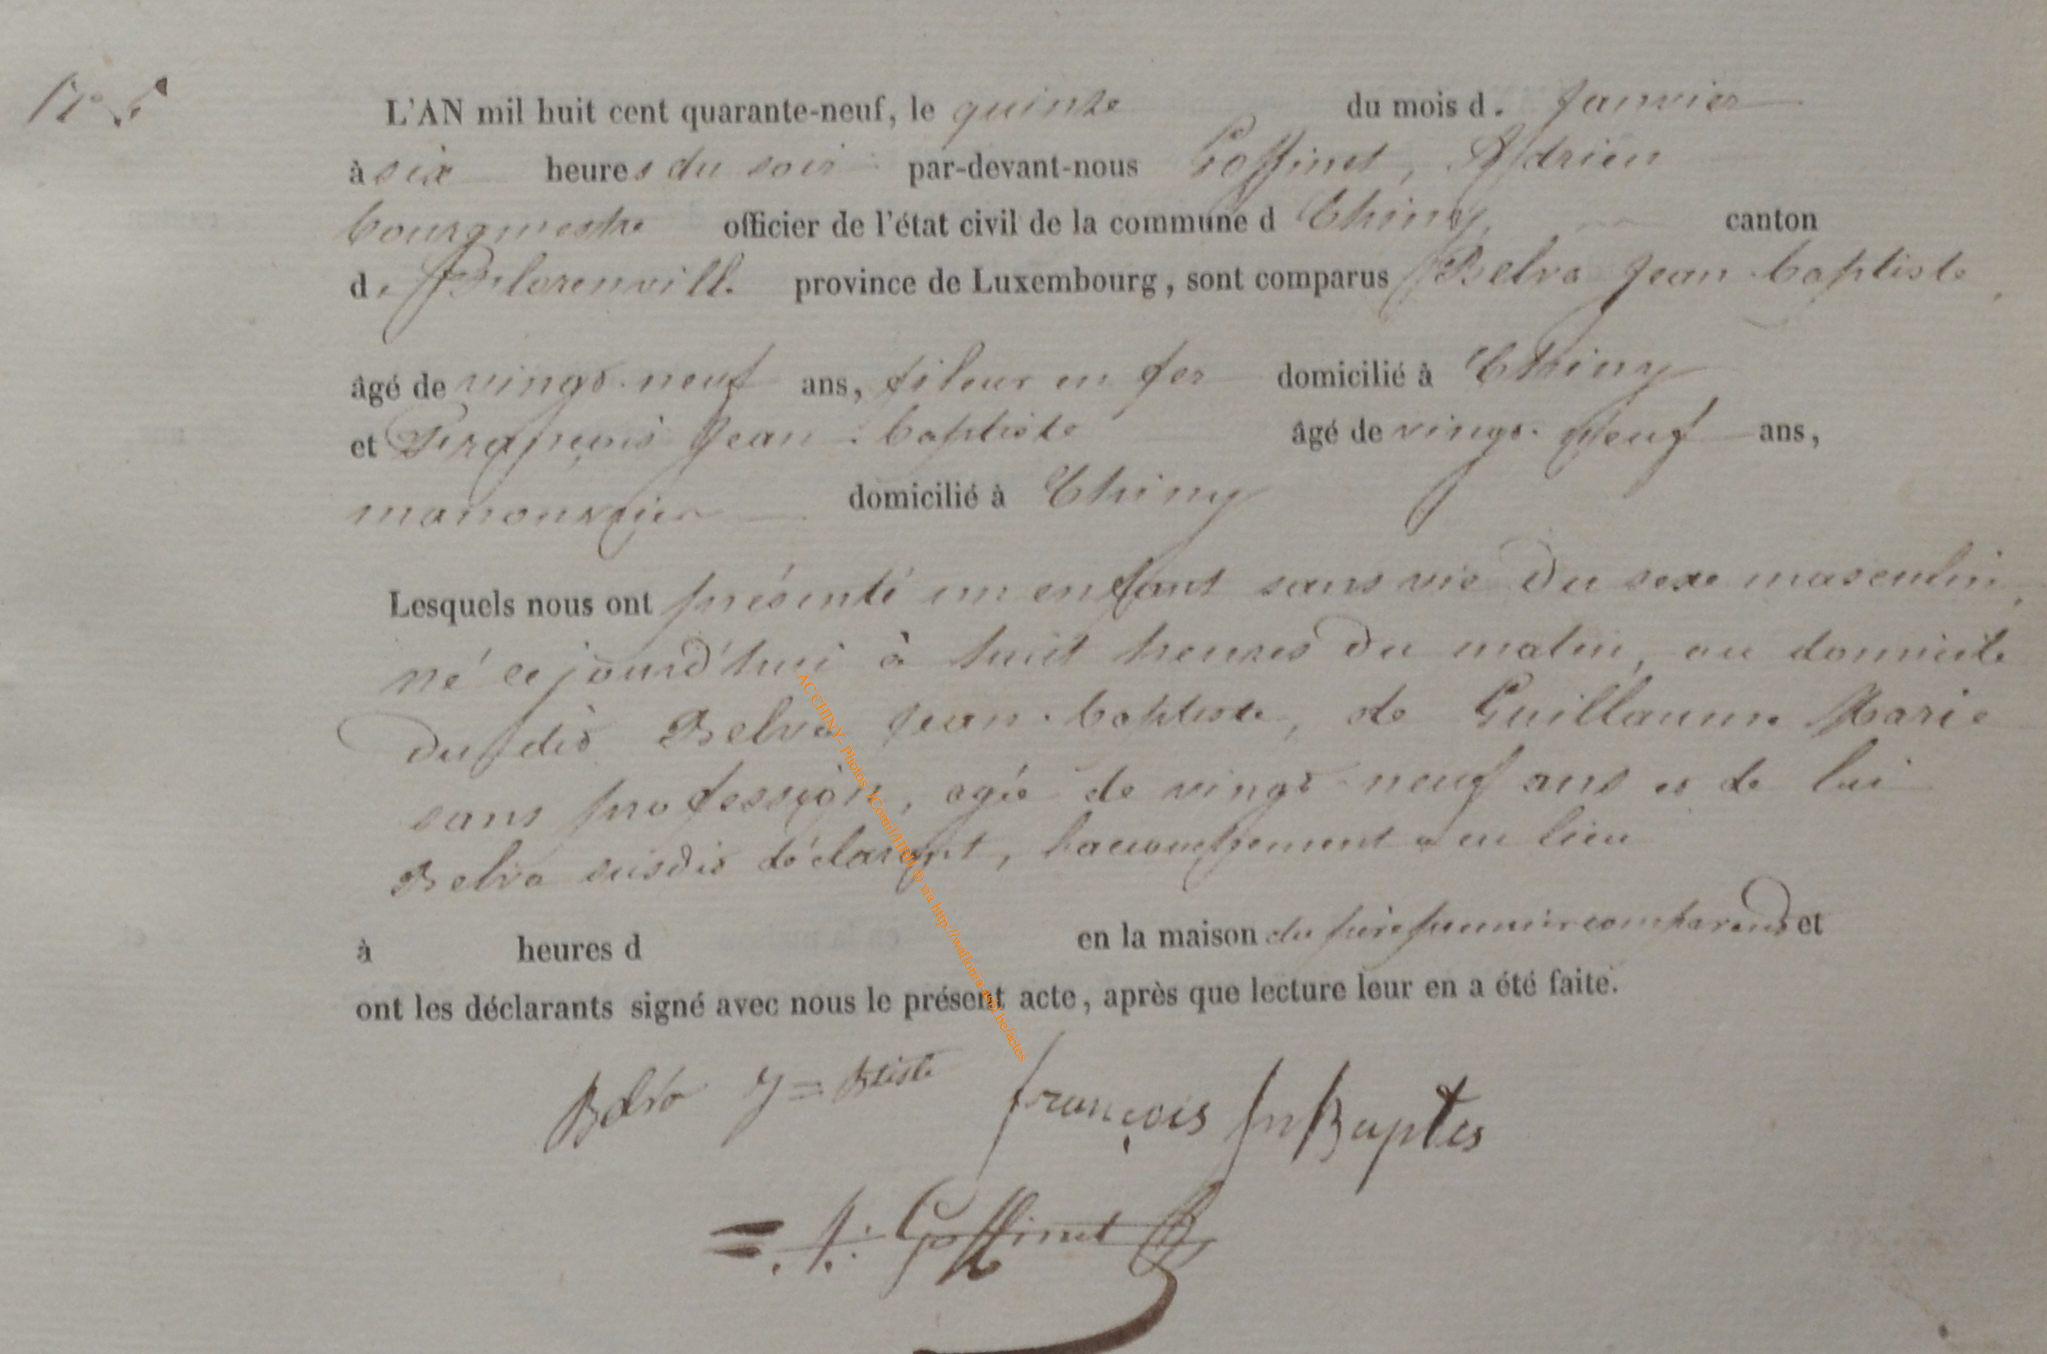 N° 5
L'AN mil huit cent quarante-neuf, le quinze du mois d. Janvier
à six heures du soir par-devant-nous Goffinet, Adrien
bourgmestre officier de l'état civil de la commune d Chiny, canton
d. Florenville province de Luxembourg, sont comparus Belva Jean baptiste,
âgé de vingt-neuf ans, fileur en fer domicilié à Chiny
et François Jean-baptiste âgé de vingt-neuf ans,
manouvrier domicilié à Chiny
Lesquels nous ont présenté un enfant sans vie du sexe masculin,
né cejourd'hui à huit heures du matin, au domicile
du dit Belva Jean-baptiste, de Guillaume Marie
sans profession, agée de vingt-neuf ans et de lui
Belva susdit déclarant, l'accouchement a eu lieu
à heures d en la maison du père premier comparant et
ont les déclarants signé avec nous le présent acte, après que lecture leur en a été faite.
Belva J=Btiste François Jn Baptes
A: Goffinet
AC CHINY- photos via http://